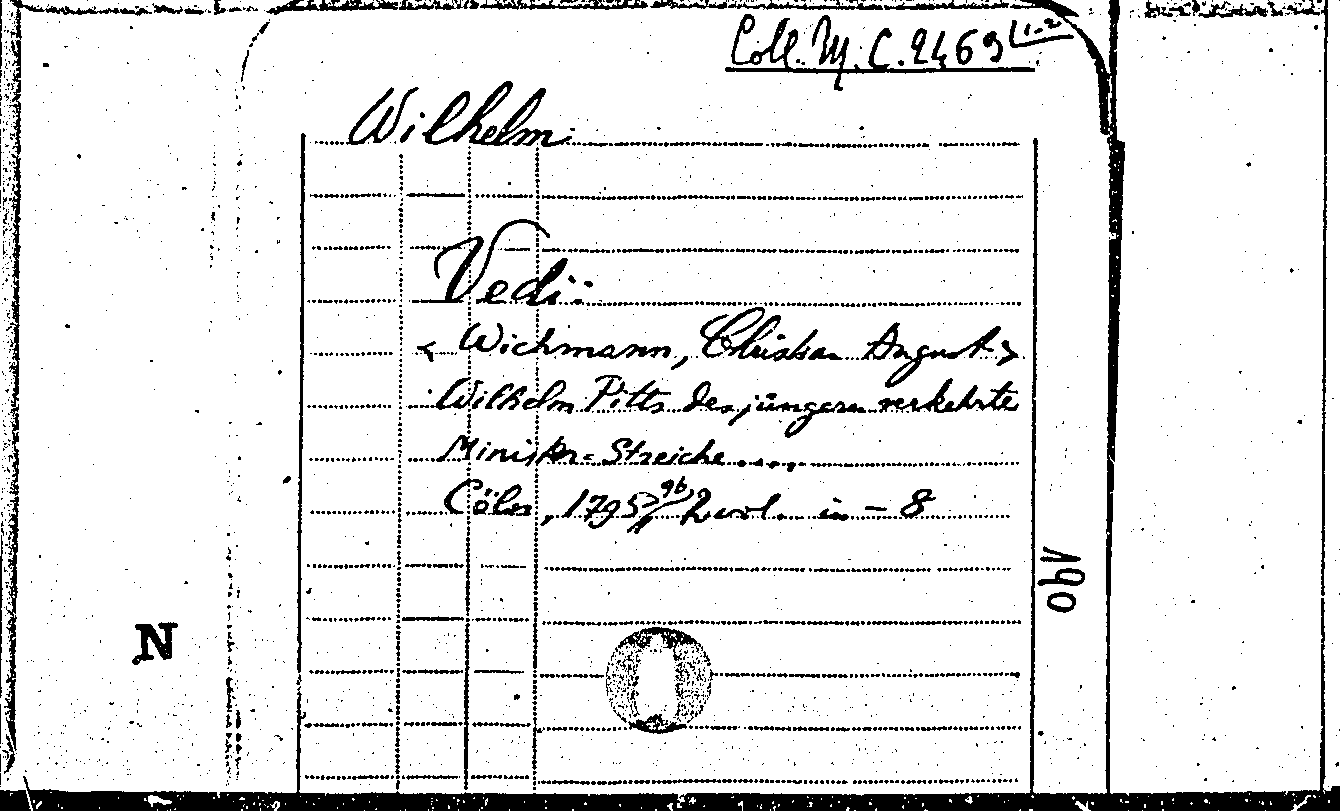 Coll. M. C. 2469 (1-2
Wilhelm
Vedi:
< Wichmann, Christian August >
Wilhelm Pitts des jüngern verkehrte
Minister-Streiche....
Cöln, 1795/96 2 vol. in-8
N